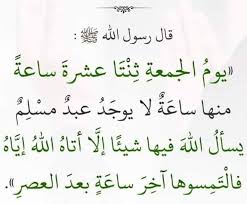 قال رسول الله ﷺ :
«يومُ الجمعةِ ثِنْتَا عشرةَ ساعةً
منها ساعَةٌ لا يوجَدُ عبدٌ مسْلِمٌ
يسألُ اللهَ فيها شيئًا إلَّا أتاهُ اللهُ إيَّاهُ
فالْتَمِسوها آخِرَ ساعةٍ بعدَ العصرِ».